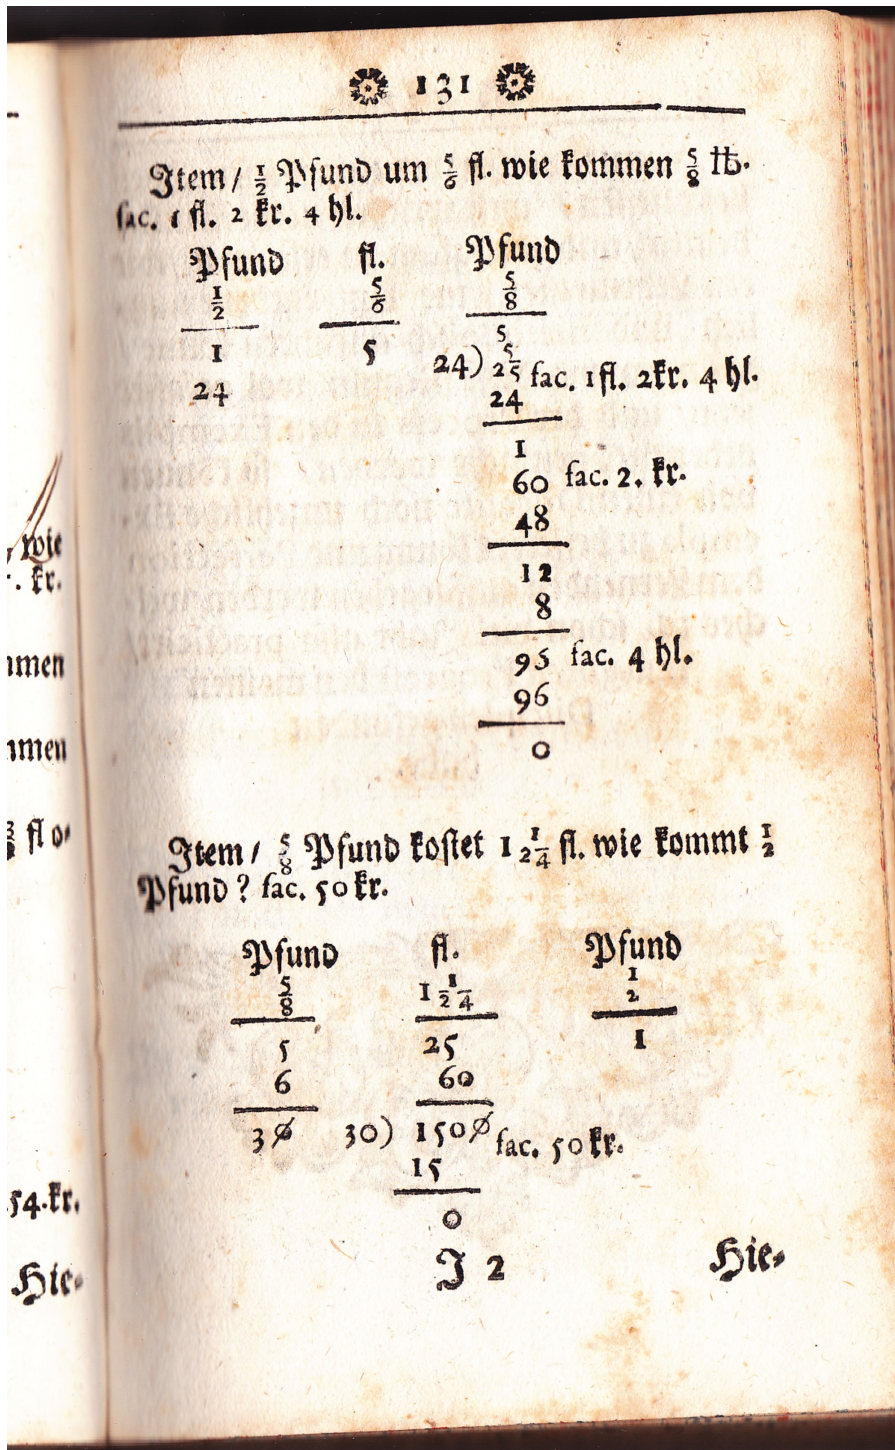 131
Item / 1/2 Pfund um 5/6 fl. wie kommen 5/8 ℔.
fac. 1 fl. 2 kr. 4 hl.
Pfund fl. Pfund
1/2 5/6 5/8
1 5 5
24 24) 5
25 fac. 1 fl. 2 kr. 4 hl.
24
1
60 fac. 2. kr.
48
12
8
95 fac. 4 hl.
96
0
Item / 5/8 Pfund kostet 1 1/24 fl. wie kommt 1/2
Pfund? fac. 50 kr.
Pfund fl. Pfund
5/8 1 1/24 1/2
5 25 1
6 60
30 30) 1500 fac. 50 kr.
15
0
J 2 Hie-
wie
. kr.
fl o-
54. kr.
Hie-